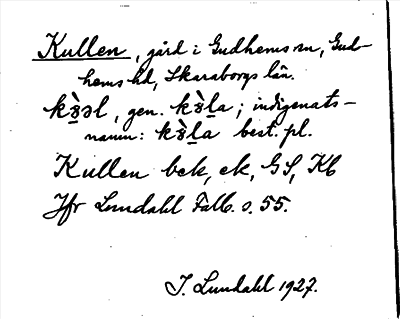 Kullen, gård i Gudhems sn, Gud-
hems hd, Skaraborgs län.
gen. ; indigenats-
namn: best. pl.
Kullen bek, ek, GS, Kb
Jfr Lundahl Falb. s. 55.
I. Lundahl 1927.